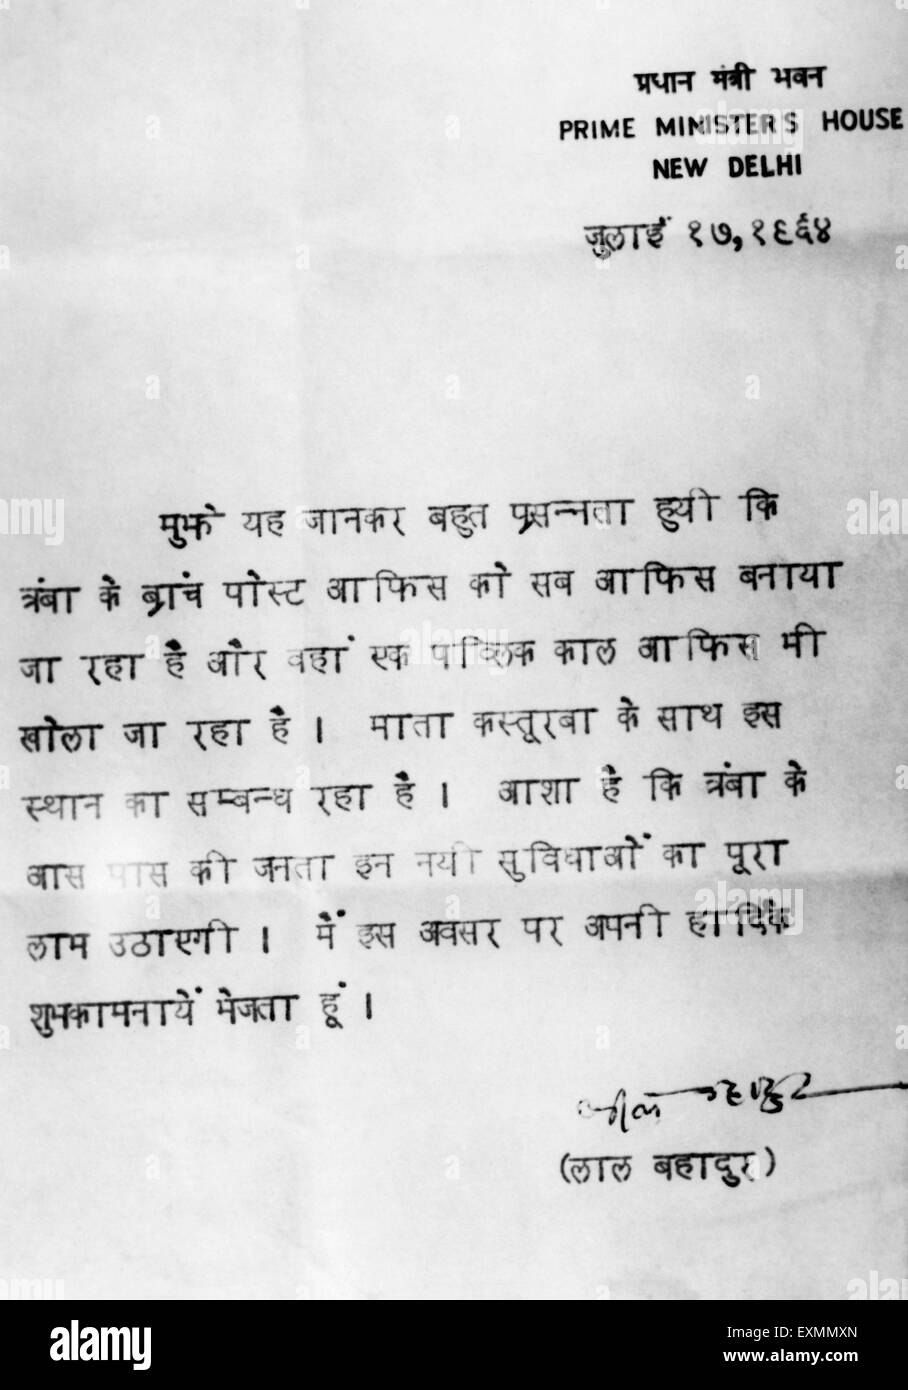 प्रधान मंत्री भवन
PRIME MINISTER'S HOUSE
NEW DELHI
जुलाई १७, १९६४
मुझे यह जानकर बहुत प्रसन्नता हुयी कि
त्रंबा के ब्रांच पोस्ट आफिस को सब आफिस बनाया
जा रहा है और वहां एक पब्लिक काल आफिस भी
खोला जा रहा है । माता कस्तूरबा के साथ इस
स्थान का सम्बन्ध रहा है । आशा है कि त्रंबा के
आस पास की जनता इन नयी सुविधाओं का पूरा
लाभ उठाएगी । मैं इस अवसर पर अपनी हार्दिक
शुभकामनायें भेजता हूं ।
लाल बहादुर
(लाल बहादुर)
alamy stock photo
EXMMXN
www.alamy.com